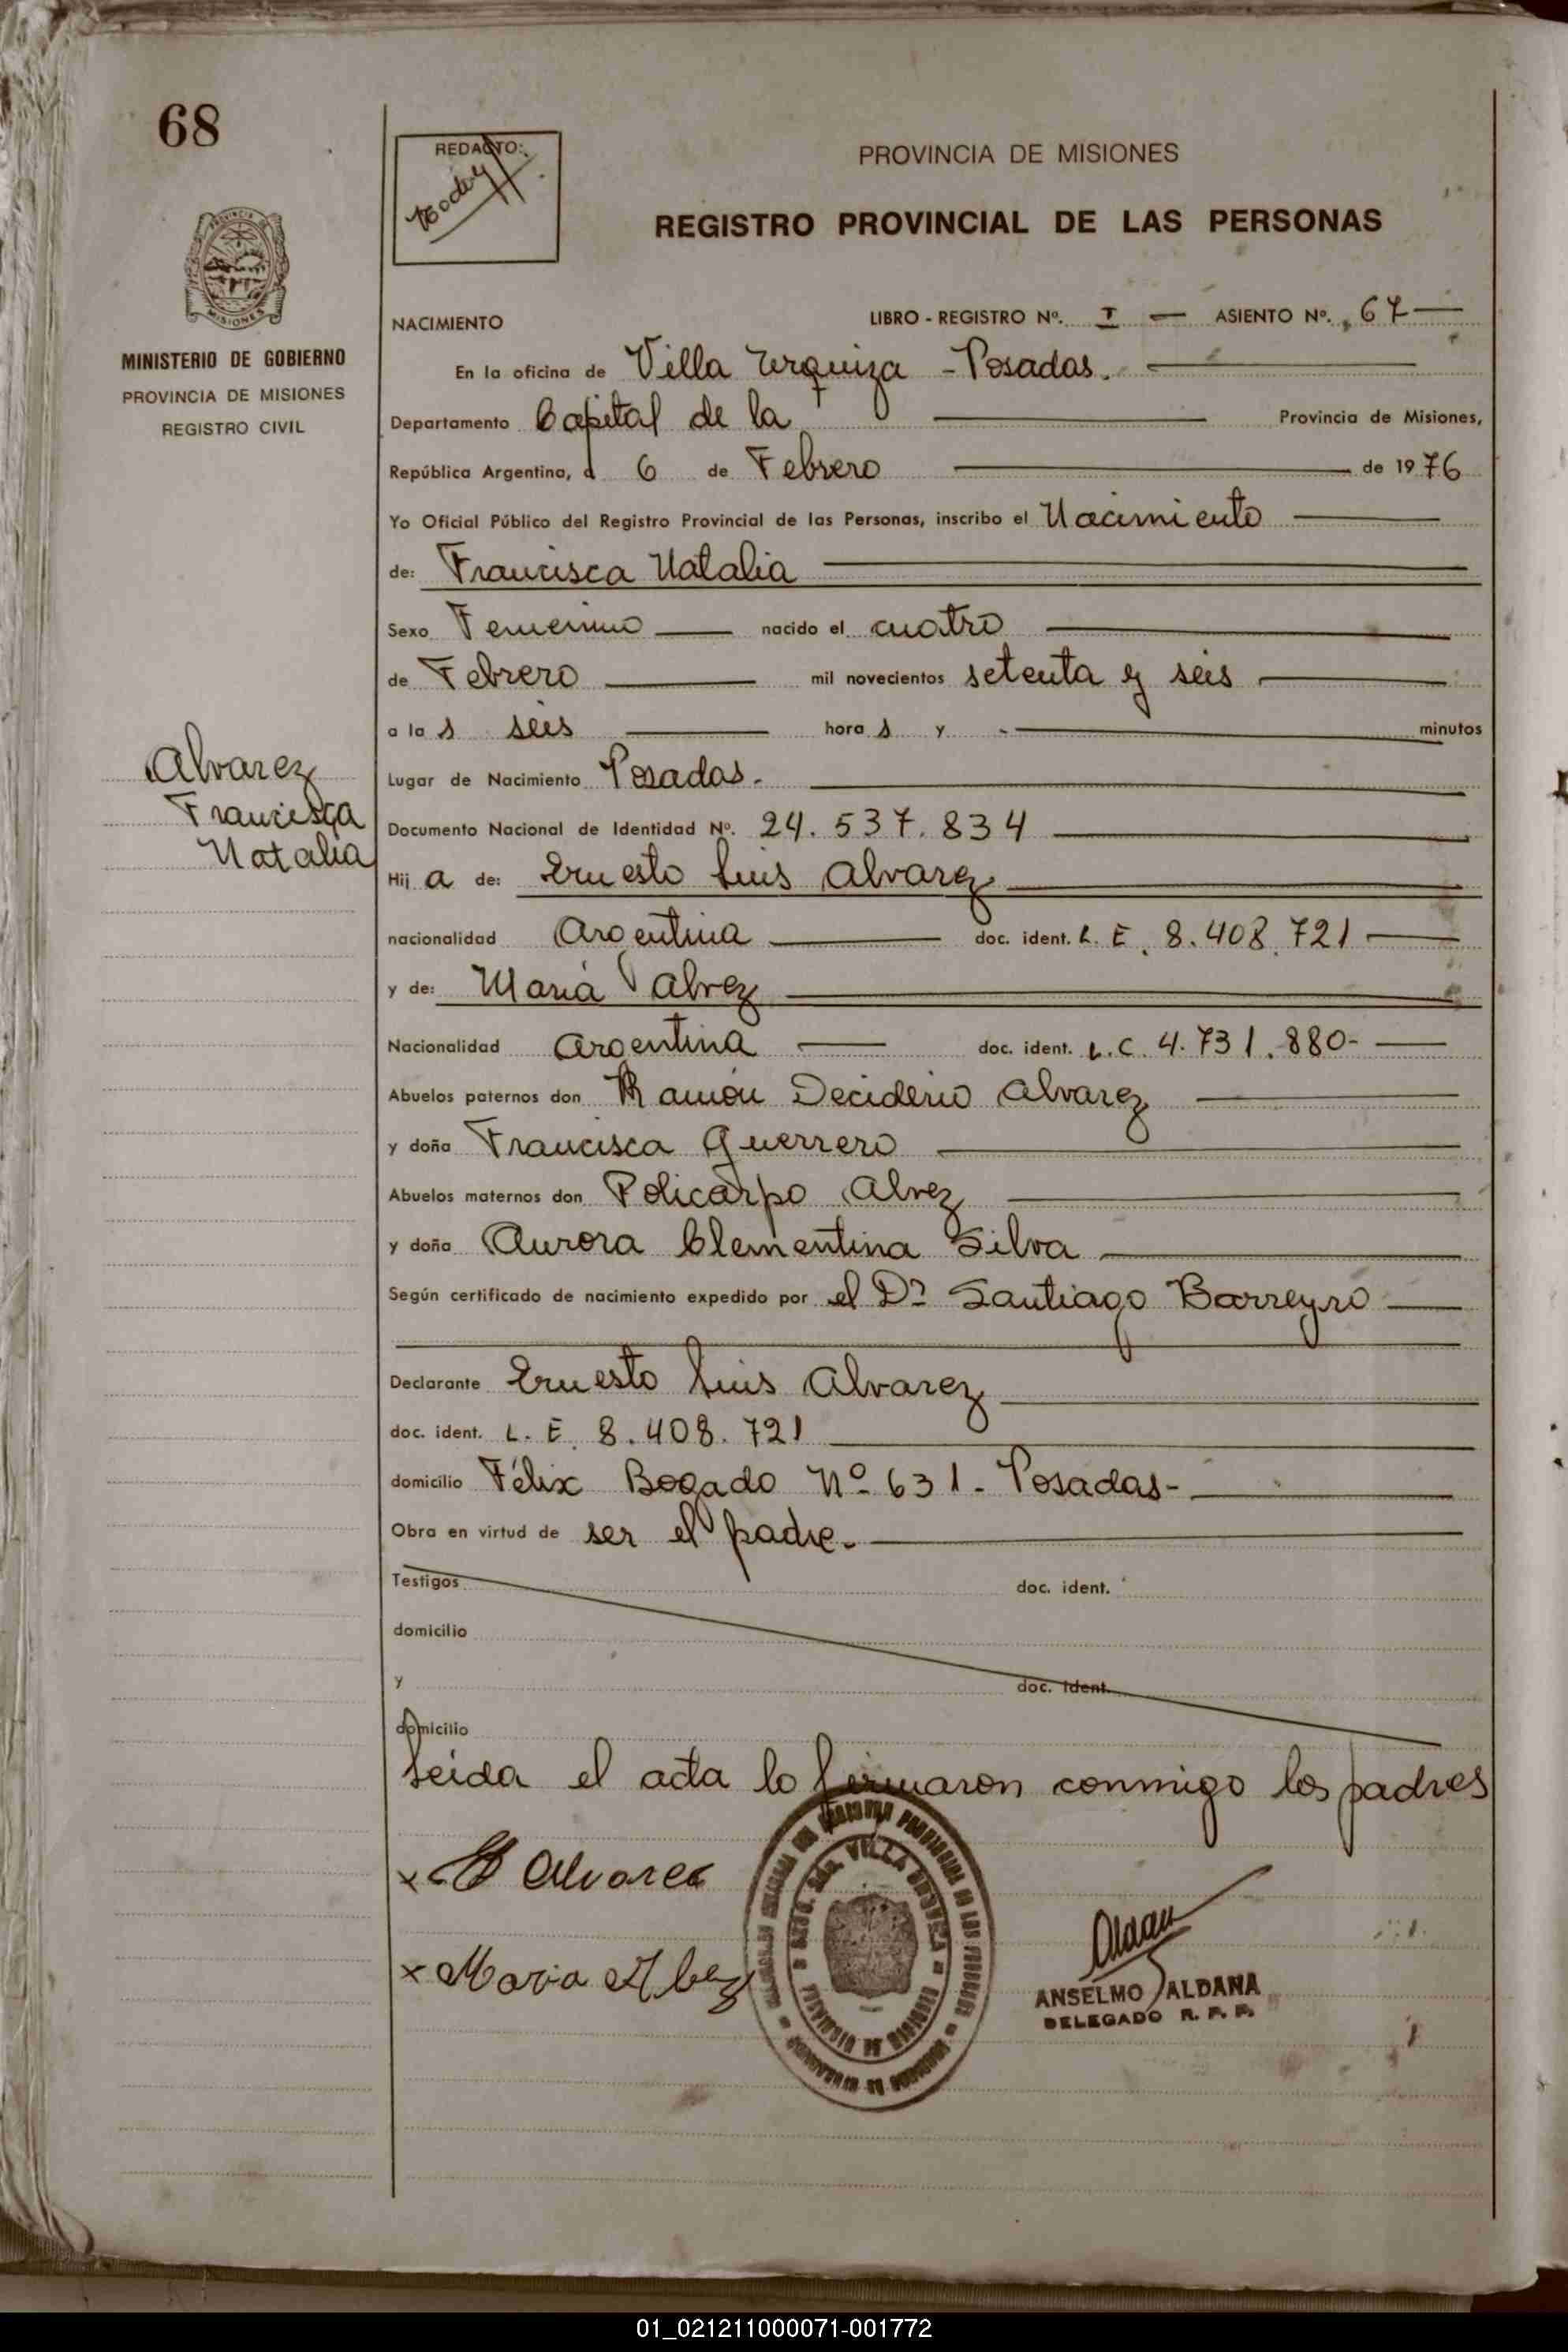 68
REDACTO:
PROVINCIA DE MISIONES
REGISTRO PROVINCIAL DE LAS PERSONAS
MISIONES
MINISTERIO DE GOBIERNO
PROVINCIA DE MISIONES
REGISTRO CIVIL
NACIMIENTO LIBRO - REGISTRO Nº. I — ASIENTO Nº. 67 —
En la oficina de Villa Urquiza - Posadas.
Departamento Capital de la Provincia de Misiones,
República Argentina, a 6 de Febrero de 1976
Yo Oficial Público del Registro Provincial de las Personas, inscribo el Nacimiento
de: Francisca Natalia
Sexo Femenino nacido el cuatro
de Febrero mil novecientos setenta y seis
a la s seis hora s y - minutos
Lugar de Nacimiento Posadas.
Alvarez
Francisca
Natalia
Documento Nacional de Identidad Nº. 24.537.834
Hij a de: Ernesto Luis Alvarez
nacionalidad Argentina doc. ident. L. E. 8.408.721
y de: María Alvez
Nacionalidad Argentina doc. ident. L.C. 4.731.880-
Abuelos paternos don Ramón Deciderio Alvarez
y doña Francisca Guerrero
Abuelos maternos don Policarpo Alvez
y doña Aurora Clementina Silva
Según certificado de nacimiento expedido por el Dr Santiago Barreyro
Declarante Ernesto Luis Alvarez
doc. ident. L. E. 8.408.721
domicilio Félix Bogado Nº 631 - Posadas-
Obra en virtud de ser el padre.
Testigos doc. ident.
domicilio
y doc. Ident.
domicilio
Leida el acta lo firmaron conmigo los padres
x Alvarez
x Maria Albez
VILLA URQUIZA
PROVINCIA DE MISIONES
ANSELMO ALDANA
DELEGADO R. P. P.
01_021211000071-001772